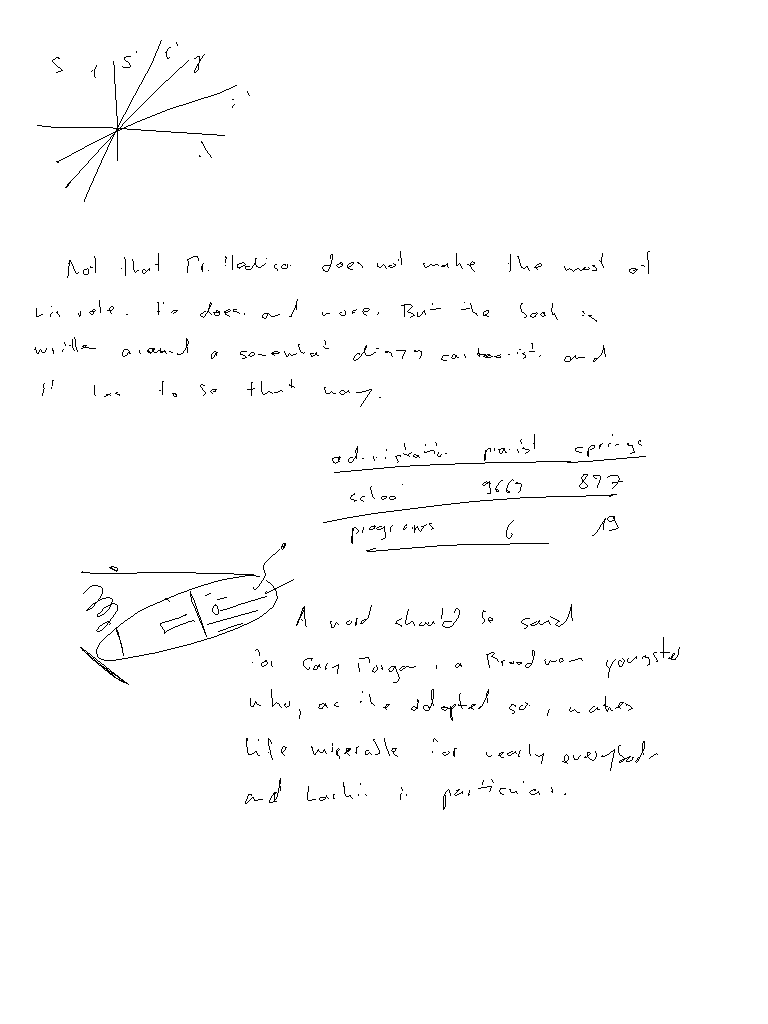 S t S' t' γ
Not that Mr. Madison does not make the most of
his role. He does, and more. But the book is
written around a somewhat dizzy cartoonist, and
it has to be that way.
administration pianist springs
school 9669 877
programs 6 19
A word should be said
for Gary Morgan, a Broadway youngster
who, as the adopted son, makes
life miserable for nearly everybody
and Larkin in particular.